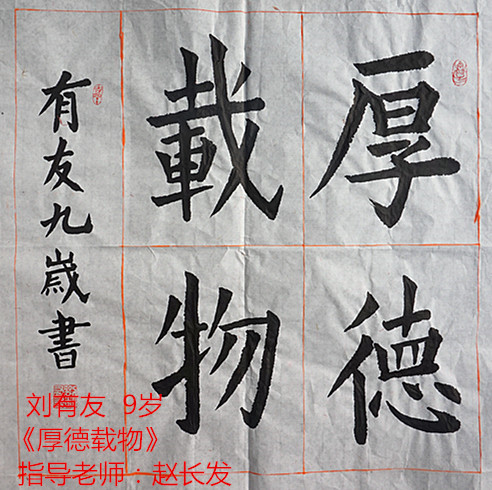 厚德
載物
有友九歲書
刘有友 9岁
《厚德载物》
指导老师：赵长发